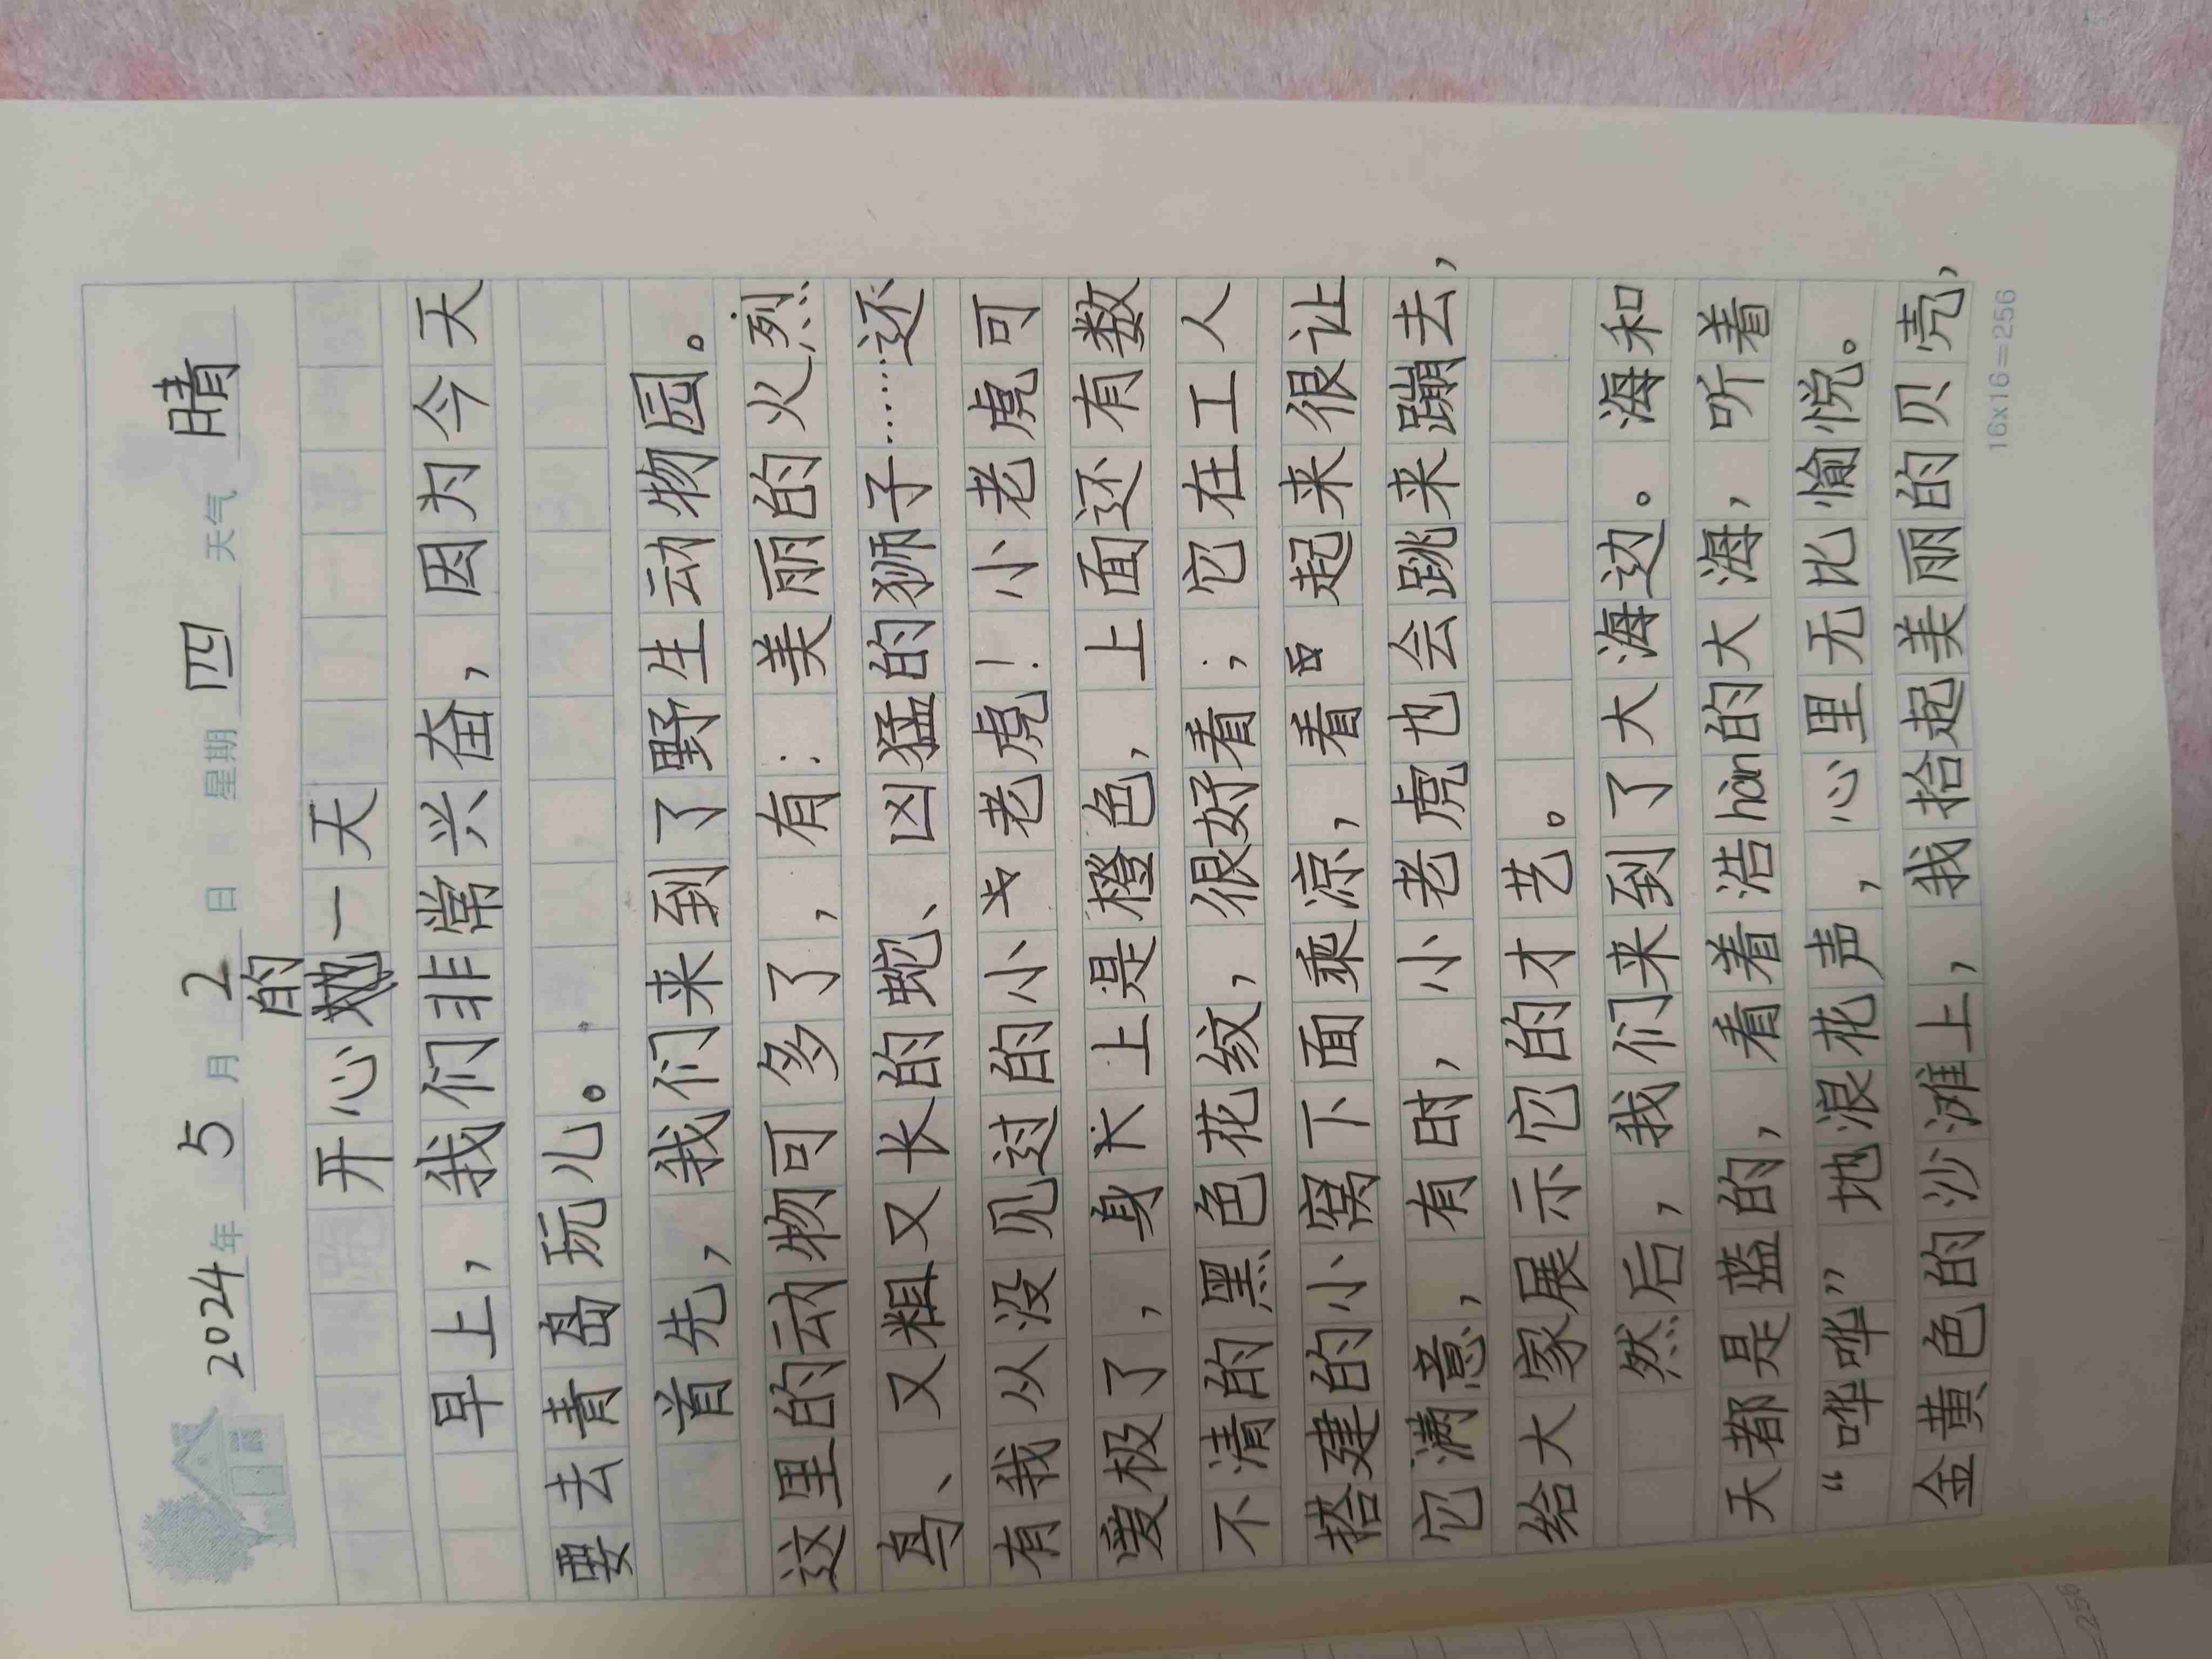 2024年5月2日 星期四 天气晴
开心的一天
早上，我们非常兴奋，因为今天
要去青岛玩儿。
首先，我们来到了野生动物园。
这里的动物可多了，有：美丽的火烈
鸟、又粗又长的蛇、凶猛的狮子……还
有我从没见过的小老虎！小老虎可
爱极了，身上是橙色，上面还有数
不清的黑色花纹，很好看；它在工人
搭建的小窝下面乘凉，看起来很让
它满意，有时，小老虎也会跳来蹦去，
给大家展示它的才艺。
然后，我们来到了大海边。海和
天都是蓝的，看着浩hàn的大海，听着
“哗哗”地浪花声，心里无比愉悦。
金黄色的沙滩上，我拾起美丽的贝壳，
16x16=256
256